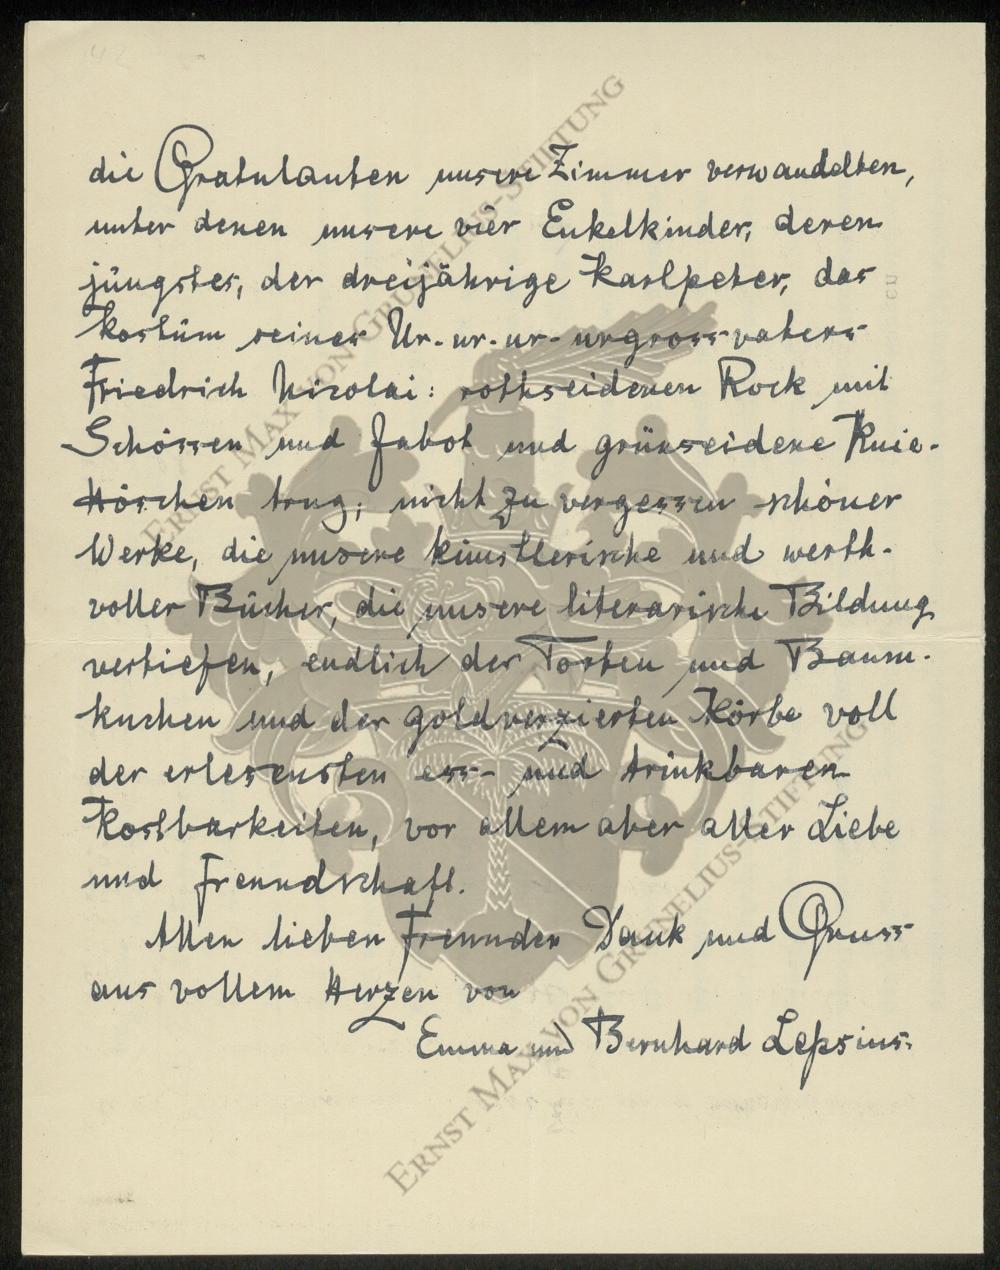 die Gratulanten unsere Zimmer verwandelten,
unter denen unsere vier Enkelkinder, deren
jüngstes, der dreijährige Karlpeter, das
Kostüm seines Ur-ur-ur-urgrossvaters
Friedrich Nicolai: rothseidenen Rock mit
Schössen und Jabot und grünseidene Knie-
Höschen trug; nicht zu vergessen schöner
Werke, die unsere künstlerische und werth-
voller Bücher, die unsere literarische Bildung
vertiefen, endlich der Torten und Baum-
kuchen und der goldverzierten Körbe voll
der erlesensten ess- und trinkbaren
Kostbarkeiten, vor allem aber aller Liebe
und Freundschaft.
Allen lieben Freunden Dank und Gruss
aus vollem Herzen von
Emma und Bernhard Lepsius.
ERNST MAX VON GRUNELIUS-STIFTUNG
ERNST MAX VON GRUNELIUS-STIFTUNG